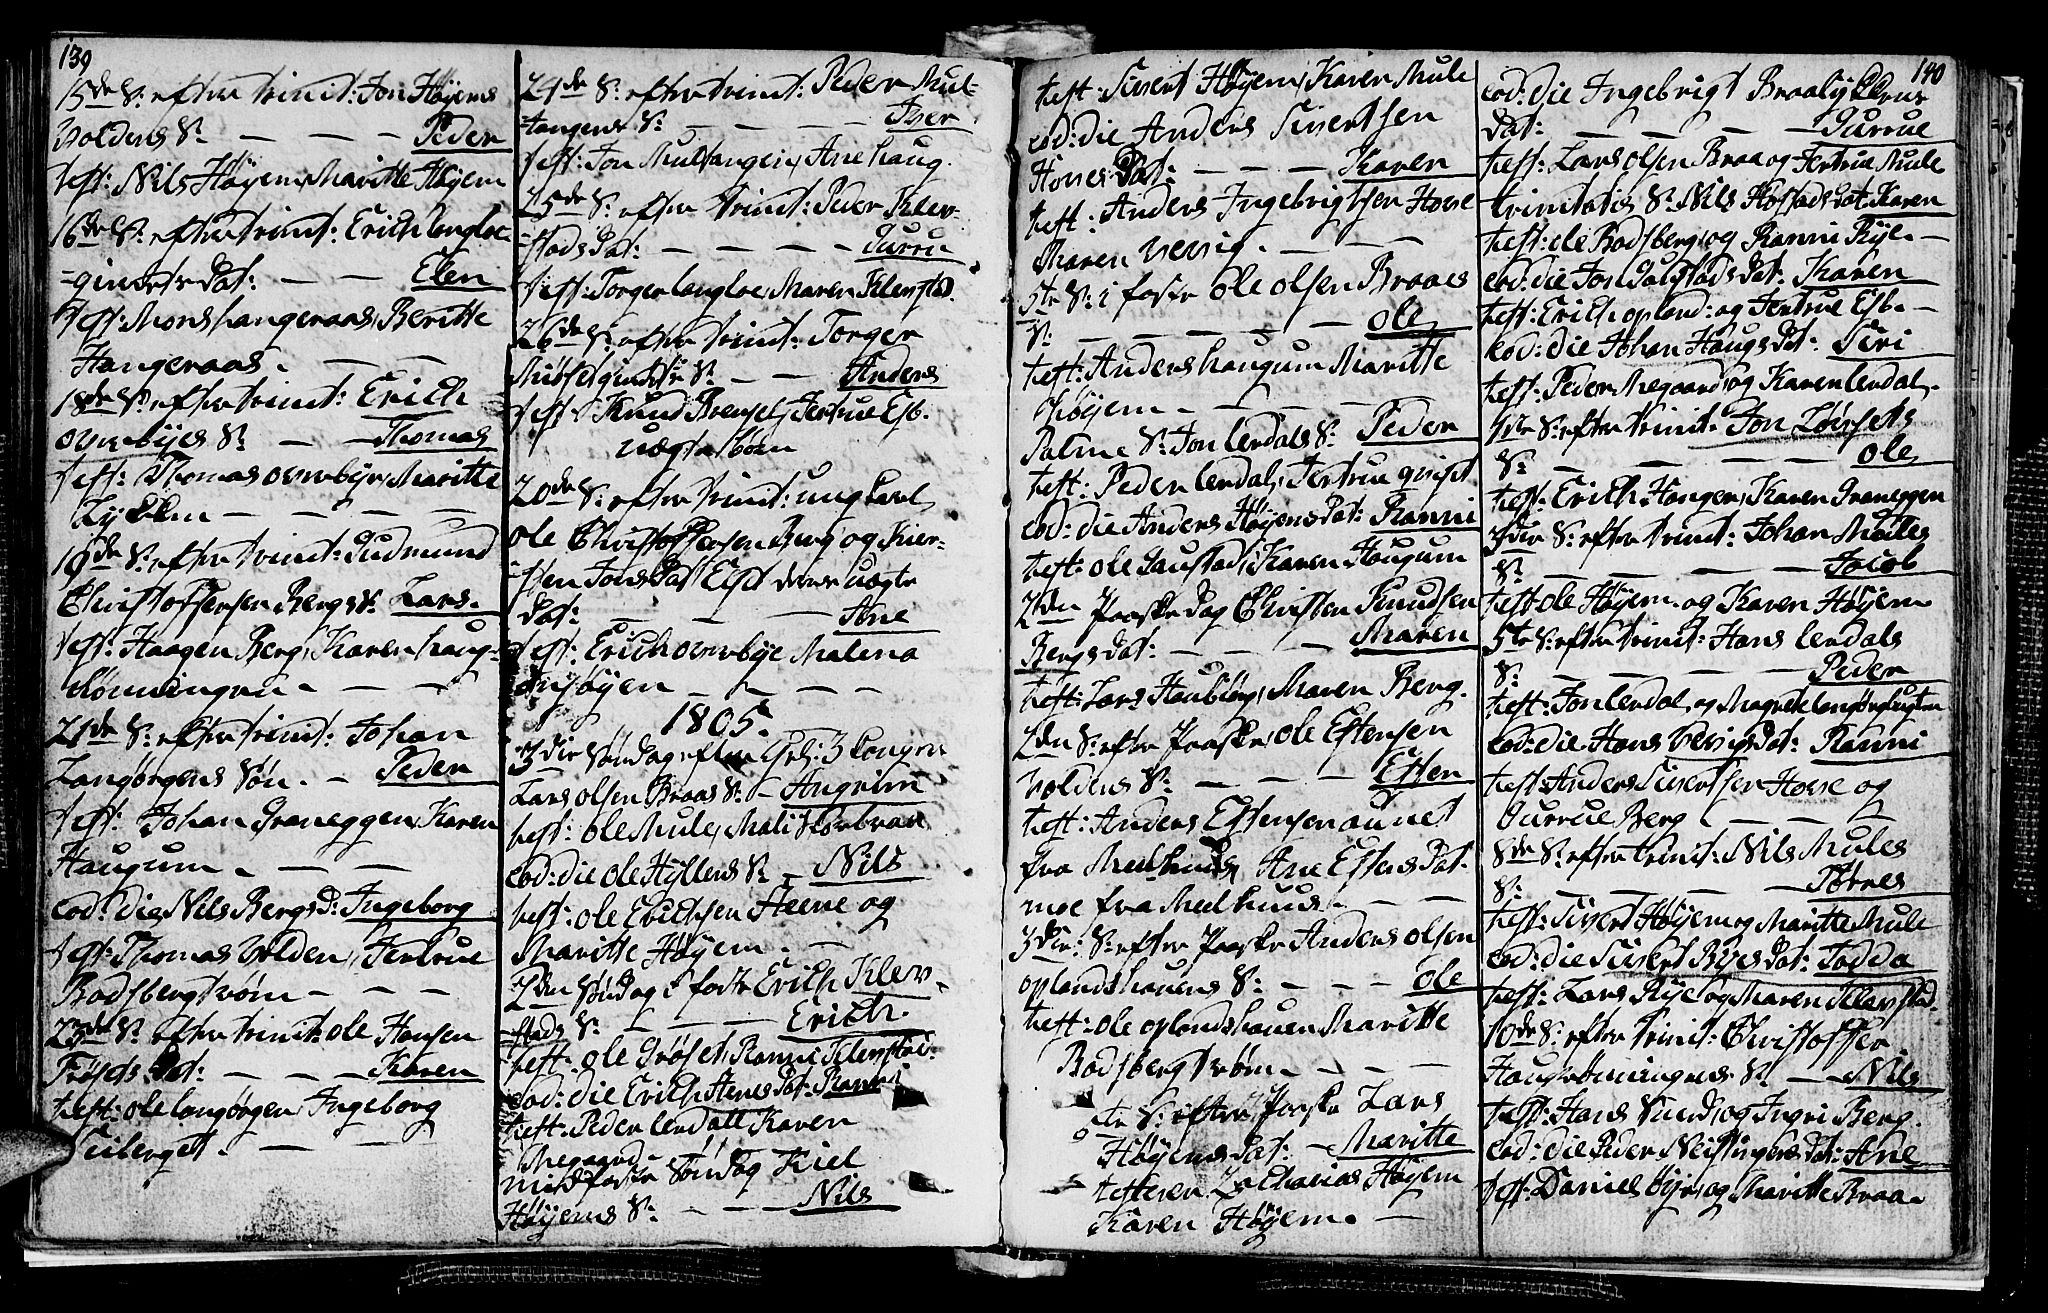 139
15de S: efter trinit: Jon Høyems
Voldens S: — — — Peder
test: Nils Høyem, Maritte Høyem
16de S: efter trinit: Erich Langloe
gindets dat: — — Elen
test: Mons hangeraas, Beritte
Hangeraas. — — —
18de S: efter trinit: Erich
overbyes S: — — Thomas
test: Thomas overbye, Maritte
Lykken — — — —
19de S: efter trinit: Gudmund
Christoffersen Bergs S: Lars.
test: Haagen Berg, Karen haug-
rønningen — — —
21de S: efter trinit: Johan
Langørgens Søn. — Peder
test: Johan Graneggen, Karen
Haugum. — — —
eod: die Nils Bergs D: Ingeborg
test: Thomas Volden, Jertrue
Badsbergtrøen — — —
23de S: efter trinit: ole Hansen
Frøsets dat: — — — Karen
test: ole langørgen, Ingeborg
Viberget. — — —
24de S: efter trinit: Peder Mul-
tangens S: — — — — Iver
test: Jon Multangen, Ane haug.
25de S: efter trinit: Peder Klev-
stads Dat: — — — — Gurru
test: Torger langloe, Maren Klevstad.
26de S: efter trinit: Torger
Miøselgindets S: — — Anders
test: Knud Brensel, Jertrue Esb.
uægte børn
20de S: efter trinit: ung karl
ole Christoffersen Berg og Kier-
sten Jons Dat Eist deres uægte
dat: — — — — Ane
test: Erich overbye Malena
Dyrhøyen — — —
1805.
3die Søndag efter Hel: 3 konger
Lars olsen Braas S: — Angrim
test: ole Mule, Mali Korbraa
eod: die ole Hyllens S: — Nils
test: ole Erichsen Steene og
Maritte Høyem. —
2den Søndag i faste Erich Klev-
stads S: — — — Erich.
test. ole Grøset, Ranni Klevstad.
eod: die Erich Stenes Dat: Ranni
test: Peder lerdall Karen
Megaard — —
midfaste Søndag Kiel
Høyems S: — — Nils
test: Sivert Høyem, Karen Mule
eod: die Anders Sivertsen
Hoves Dat: — — — Karen
test: Anders Ingebrigtsen Hove
Maren Vevig. — — — —
5te S: i faste ole olsen Braaes
S: — — — — — ole
test: Anders haugum Maritte
Høyem — — — —
Palme S: Jon lerdals S: Peder
test: Peder lerdal, Jertrue qvist
eod: die Anders Høyems Dat: Ranni
test: ole Gaustad, Karen Haugum
2den Paaske dag Christen Knudsen
Bergs dat: — — — Maren
test: Lars Haubiørg, Maren Berg.
2den S: efter Paaske, ole Estensen
Voldens S: — — — Esten
test: Anders Estensen aunet
fra Melhuus, Ane Estens Dat.
moe fra Melhuus. — —
3die: S: efter Paaske Anders olsen
oplandshauens S: — — — ole
test: ole oplandshauen Maritte
Badsbergtrøen — — — —
te S: efter Paaske Lars
Høyems Dat: — Maritte
testeren Zacharias Høyem
Karen Høyem. —
140
eod: die Ingebrigt Braalykkens
Dat: — — — — Gurrue
test: Lars olsen Braa og Jertrue Mule
trinitatis S: Nils Hofstads Dat Karen
test: ole Badsberg, og Ranni Rye. —
eod: die Jon Gaustads Dat: Karen
test: Erich opland: og Jertrue Esb. —
eod: die Johan Haugs Dat: Siri
test: Peder Megaard, og Karen lerdal.
1ste S: efter trinit: Jon Lørsets
S: — — — — — ole
test: Erich Hangen, Karen Graneggen
3die S: efter trinit: Johan Mules
S: — — — — — Jacob
test ole Høyem og Karen Høyem
5te S: efter trinit: Hans lerdals
S: — — — — Peder
test: Jon lerdal, og Magrete langørgluyten
eod: die Hans Vevigs Dat: Ranni
test: Anders Sivertsen Hove og
Gurrue Berg — — —
8de S: efter trinit: Nils Mules
S: — — — — Tørres
test: Sivert Høyem og Maritte Mule
eod: die Sivert Ryes Dat: Jadda
test: Lars Rye og Maren Klevstad.
10de S: efter trinit: Christoffer
Haugrønningens S: — Nils
test: Hans Sund, og Ingri Berg.
eod: die Peder Neistingens Dat: Ane
test: Daniel øye og Maritte Braa. —